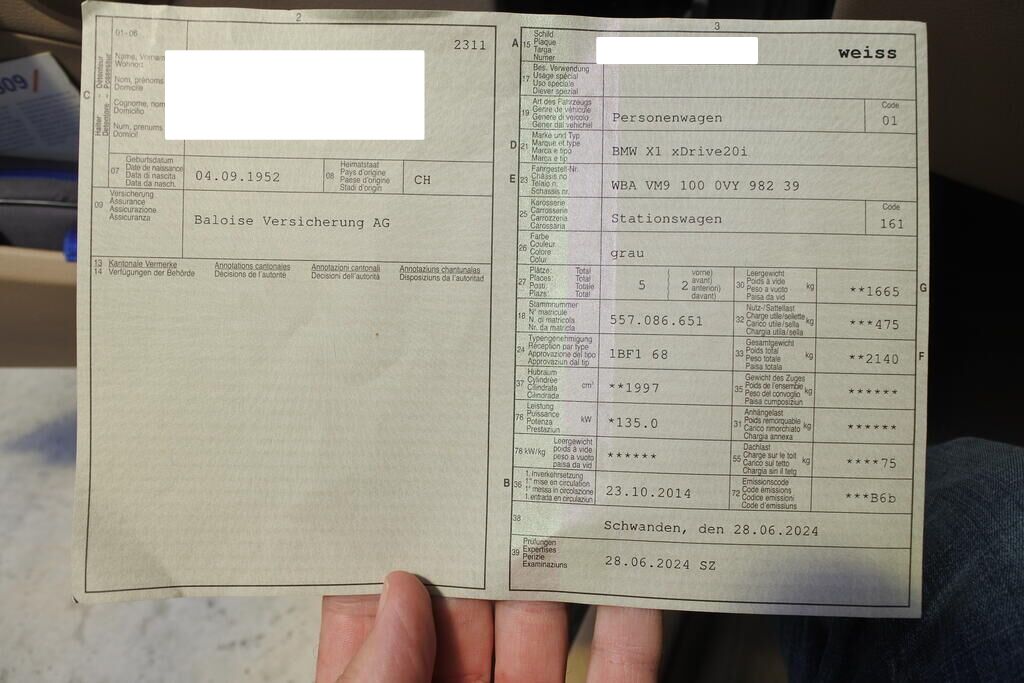 609
2
01-06
2311
C
Halter - Détenteur
Detentore - Possessur
Name, Vornam
Wohnort
Nom, prénoms
Domicile
Cognome, nom
Domicilio
Num, prenums
Domicil
07
Geburtsdatum
Date de naissance
Data di nascita
Data da nasch.
04.09.1952
08
Heimatstaat
Pays d'origine
Paese d'origine
Stadi d'origin
CH
09
Versicherung
Assurance
Assicurazione
Assicuranza
Baloise Versicherung AG
13 Kantonale Vermerke
14 Verfügungen der Behörde
Annotations cantonales
Décisions de l'autorité
Annotazioni cantonali
Decisioni dell'autorità
Annotaziuns chantunalas
Disposiziuns da l'autoritad
3
A 15
Schild
Plaque
Targa
Numer
weiss
17
Bes. Verwendung
Usage spécial
Uso speciale
Diever spezial
19
Art des Fahrzeugs
Genre de véhicule
Genere di veicolo
Gener dal vehichel
Personenwagen
Code
01
D 21
Marke und Typ
Marque et type
Marca e tipo
Marca e tip
BMW X1 xDrive20i
E 23
Fahrgestell-Nr.
Châssis no
Telaio n.
Schassis nr.
WBA VM9 100 0VY 982 39
25
Karosserie
Carrosserie
Carrozzeria
Carossaria
Stationswagen
Code
161
26
Farbe
Couleur
Colore
Colur
grau
27
Plätze: Total
Places: Total
Posti: Totale
Plazs: Total
5
2
vorne)
avant)
anteriori)
davant)
30
Leergewicht
Poids à vide
Peso a vuoto
Paisa da vid
kg
**1665
G
18
Stammnummer
N° matricule
N. di matricola
Nr. da matricla
557.086.651
32
Nutz-/Sattellast
Charge utile/sellette
Carico utile/sella
Chargia utila/sella
kg
***475
24
Typengenehmigung
Réception par type
Approvazione del tipo
Approvaziun dal tip
1BF1 68
33
Gesamtgewicht
Poids total
Peso totale
Paisa totala
kg
**2140
F
37
Hubraum
Cylindrée
Cilindrata
Cilindrada
cm³
**1997
35
Gewicht des Zuges
Poids de l'ensemble
Peso del convoglio
Paisa cumposiziun
kg
******
76
Leistung
Puissance
Potenza
Prestaziun
kW
*135.0
31
Anhängelast
Poids remorquable
Carico rimorchiato
Chargia annexa
kg
******
78 kW/kg
Leergewicht
poids à vide
peso a vuoto
paisa da vid
******
55
Dachlast
Charge sur le toit
Carico sul tetto
Chargia sin il tetg
kg
****75
B 36
1. Inverkehrsetzung
1re mise en circulation
1a messa in circolazione
1. entrada en circulaziun
23.10.2014
72
Emissionscode
Code émissions
Codice emissioni
Code d'emissiuns
***B6b
38
Schwanden, den 28.06.2024
39
Prüfungen
Expertises
Perizie
Examinaziuns
28.06.2024 SZ